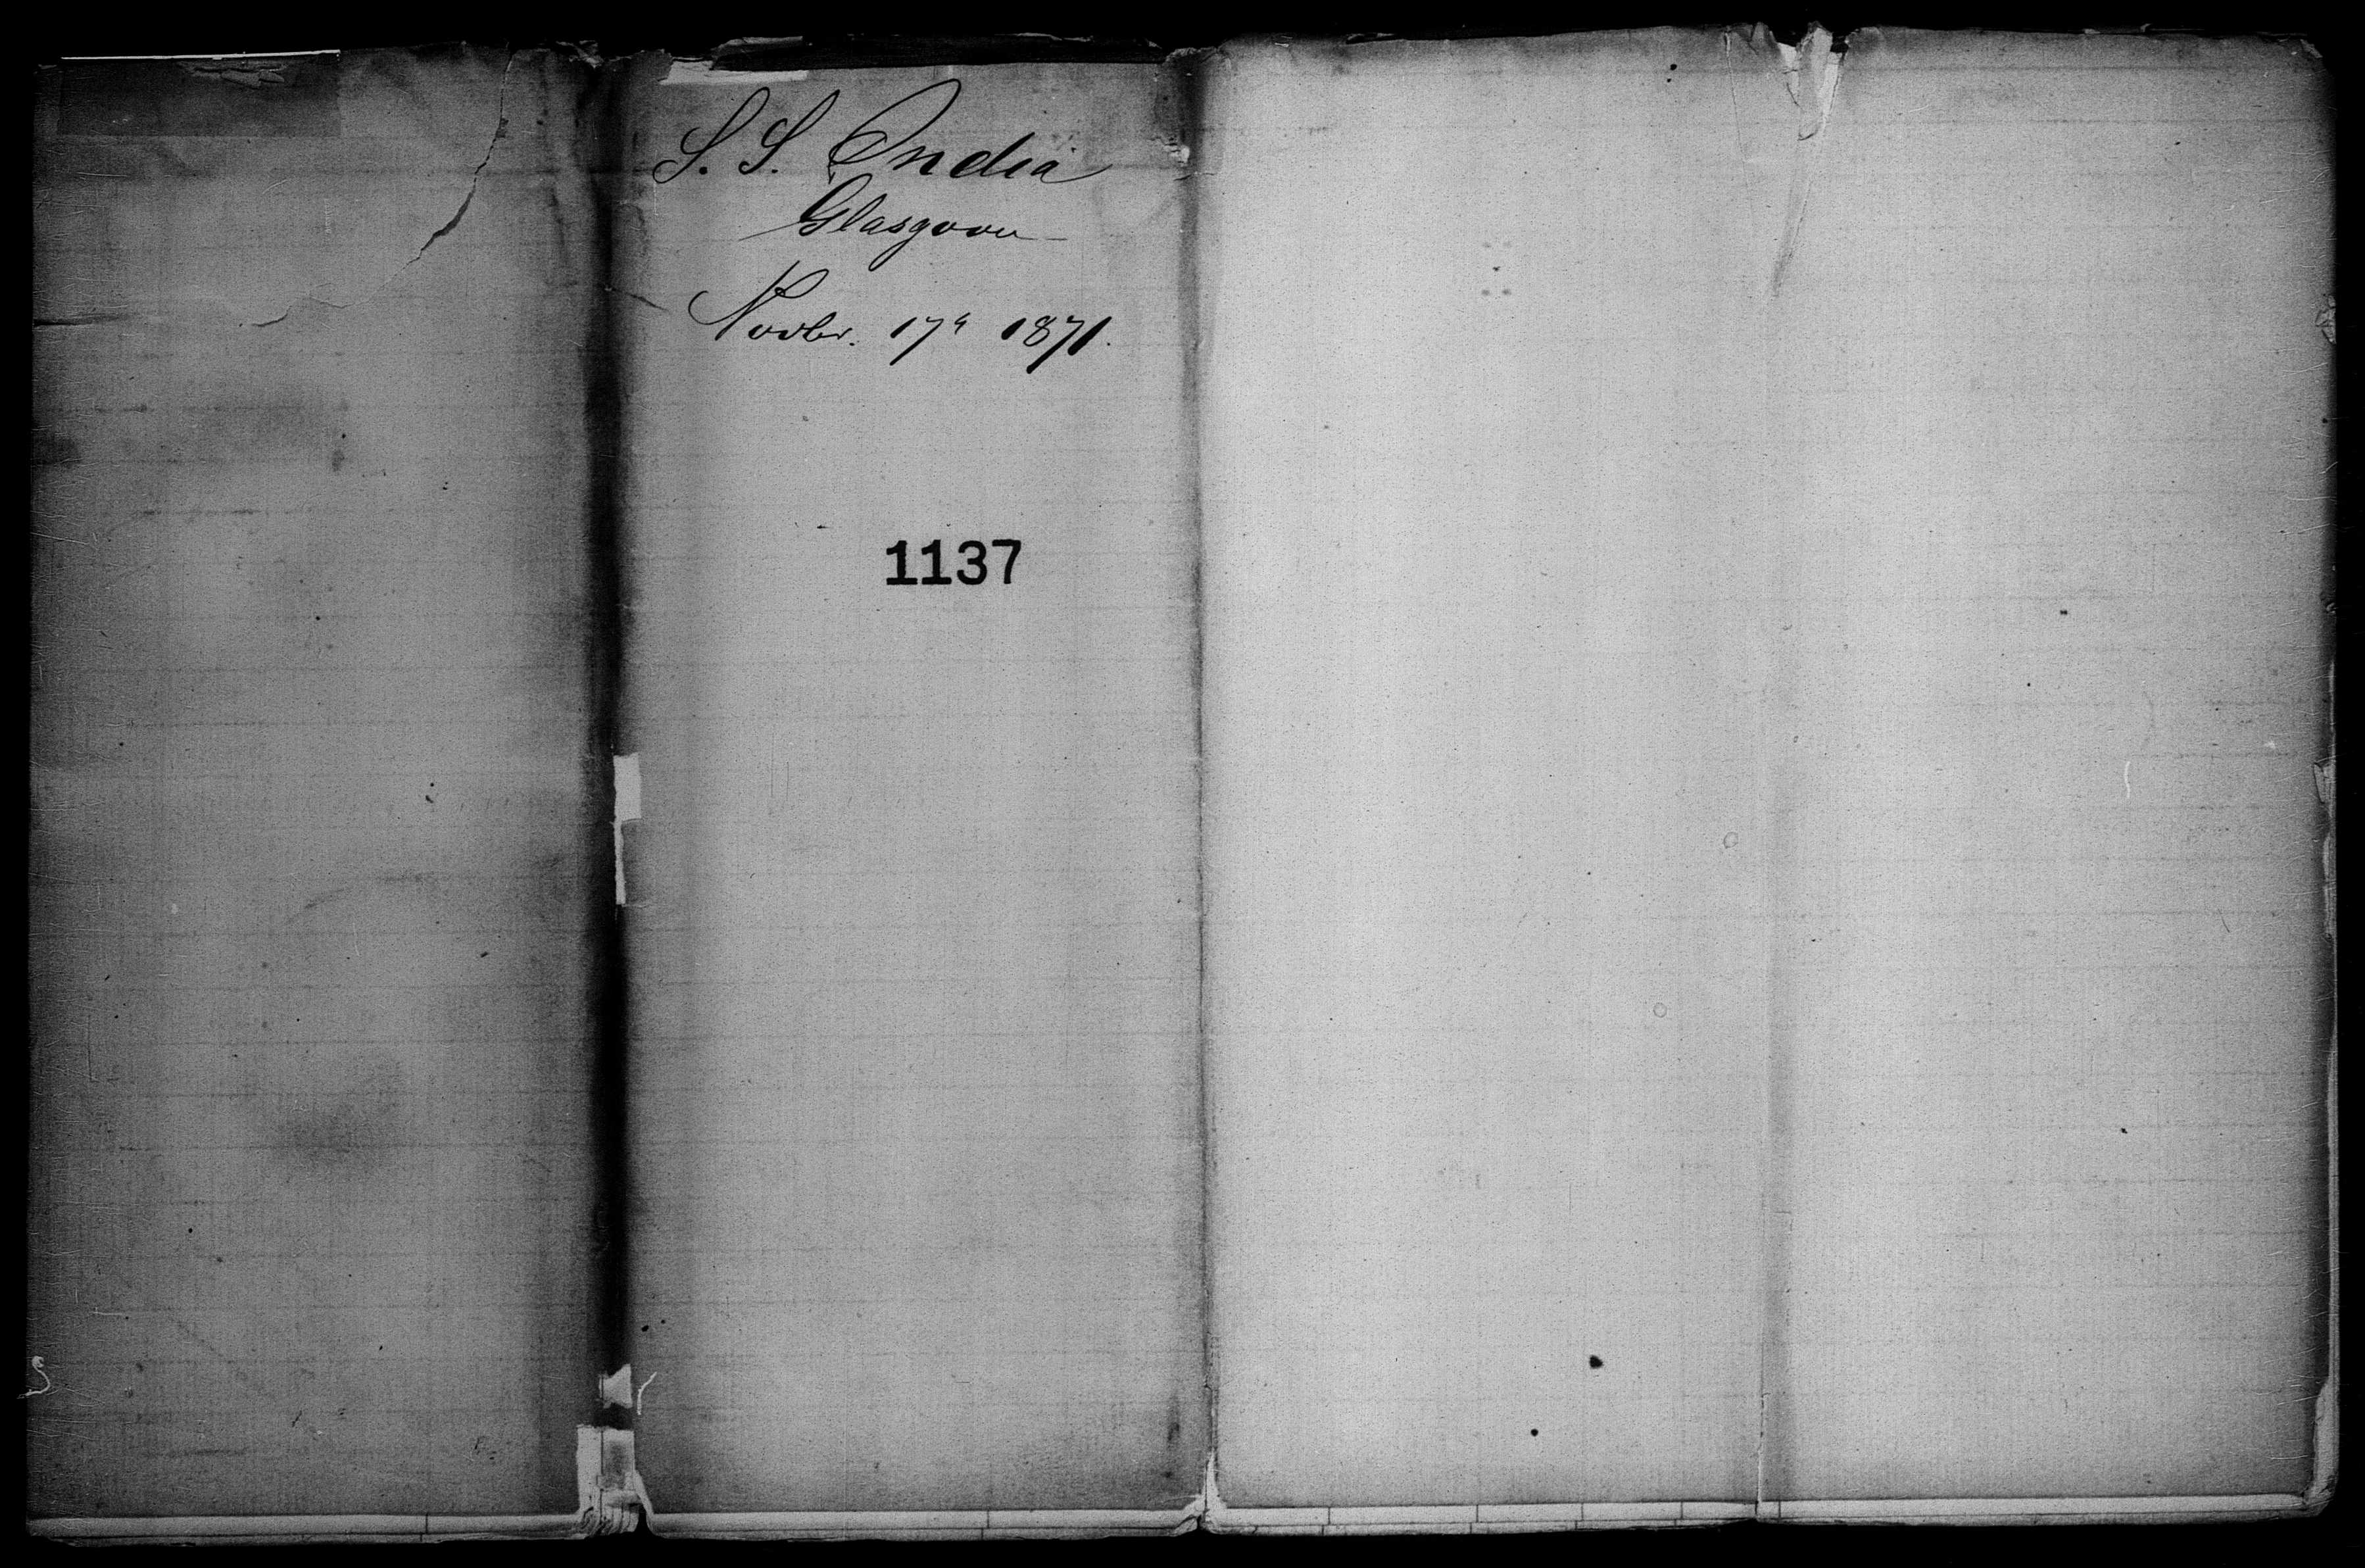 S. S. India
Glasgow
Novbr. 17th 1871.
1137